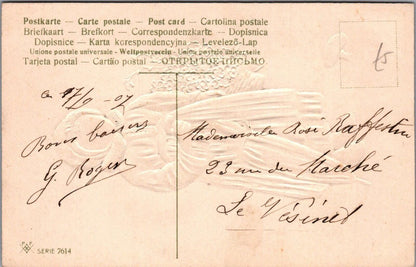 Postkarte - Carte postale - Post card - Cartolina postale
Briefkaart - Brefkort - Correspondenzkarte - Dopisnica
Dopisnice - Karta korespondencyjna - Levelező-Lap
Unione postale universale - Weltpostverein - Union postale universelle
Tarjeta postal - Cartão postal - ОТКРЫТОЕ ПИСЬМО
07
Bons baisers
G. Roger
Mademoiselle Rose Raffestin
23 rue du Marché
Le Vésinet
SERIE 7614